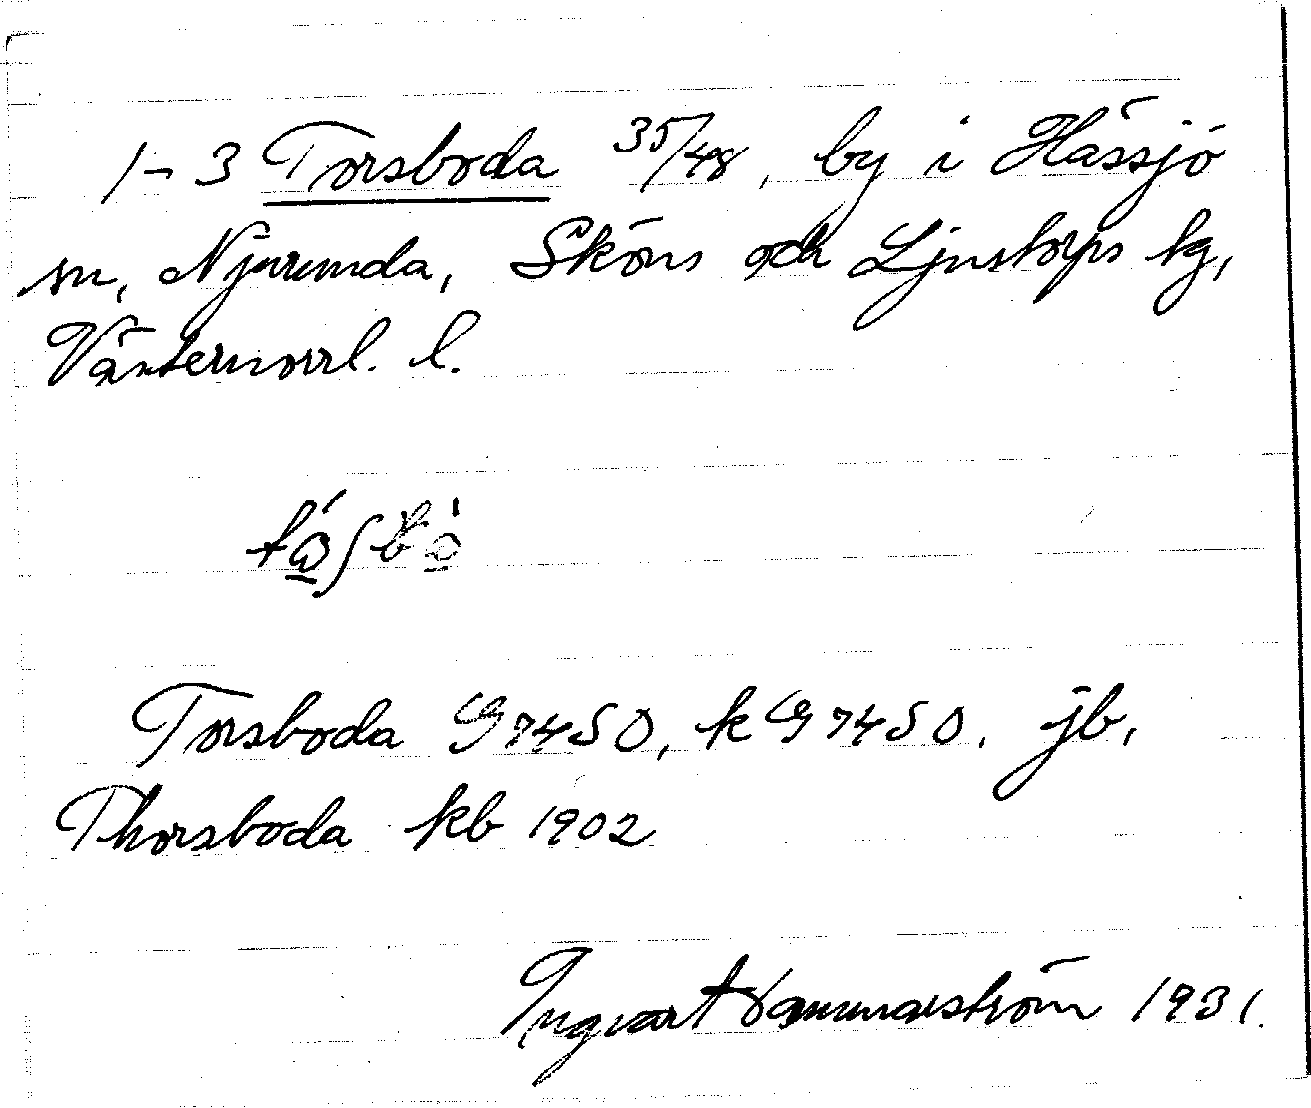 1-3 Torsboda 35/48, by i Hässjö
sn, Njurunda, Sköns och Ljustorps tg,
Västernorrl. l.
Torsboda G7450, k G7450, jb,
Thorsboda kb 1902
Ingvart Hammarström 1931.